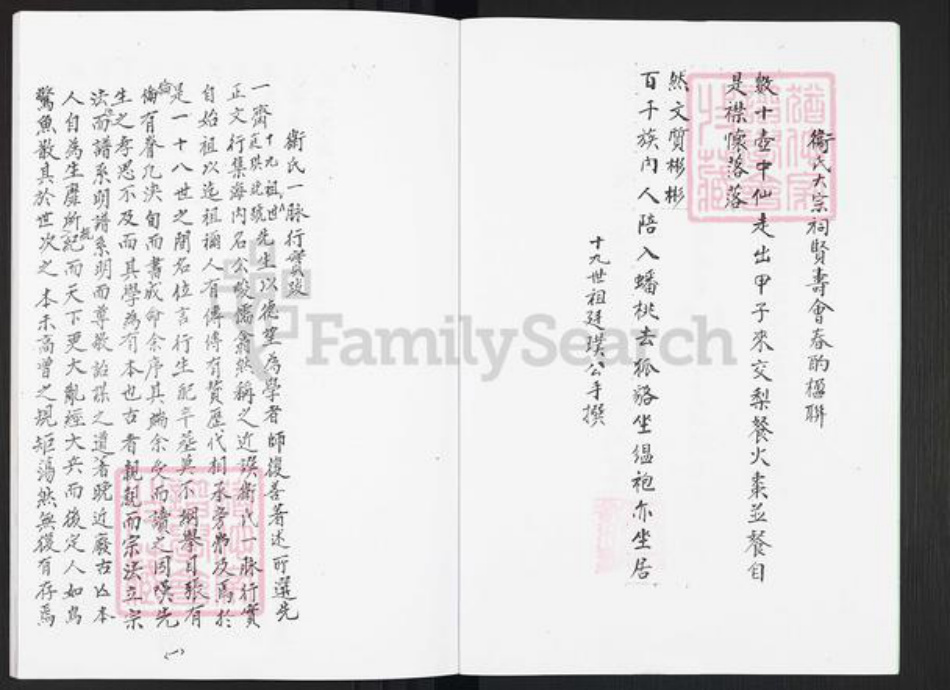 衞氏大宗祠賢壽會春酌楹聯
數十壺中仙走出甲子來交梨餐火棗並餐自
是襟懷落落
百千族内人陪入蟠桃去狐貉坐縕袍亦坐居
然文質彬彬
十九世祖廷璞公手撰
衞氏一脉行實跋
一齋十九祖廷璞號先生以德望為學者師復善著述所選先
正文行集海内名公皎儒翕然稱之近譔衞氏一脉行實
自始祖以迄祖禰人有傳傳有贊歷代相承旁
是一十八世之間名位言行生配卒塟莫不綱舉目張有
倫有脊凡浹旬而書成命余序其端余受而讀之因嘆先
生之孝思不及而其學為有本也古者親親而宗法立宗
法而譜系明譜系明而尊敬之道著晚近廢古以本
人自為生靡所紀而天下更大亂經大兵而後定人如鳥
驚魚散其於世次之本末高曾之規矩蕩然無復有存焉
(一)
FamilySearch